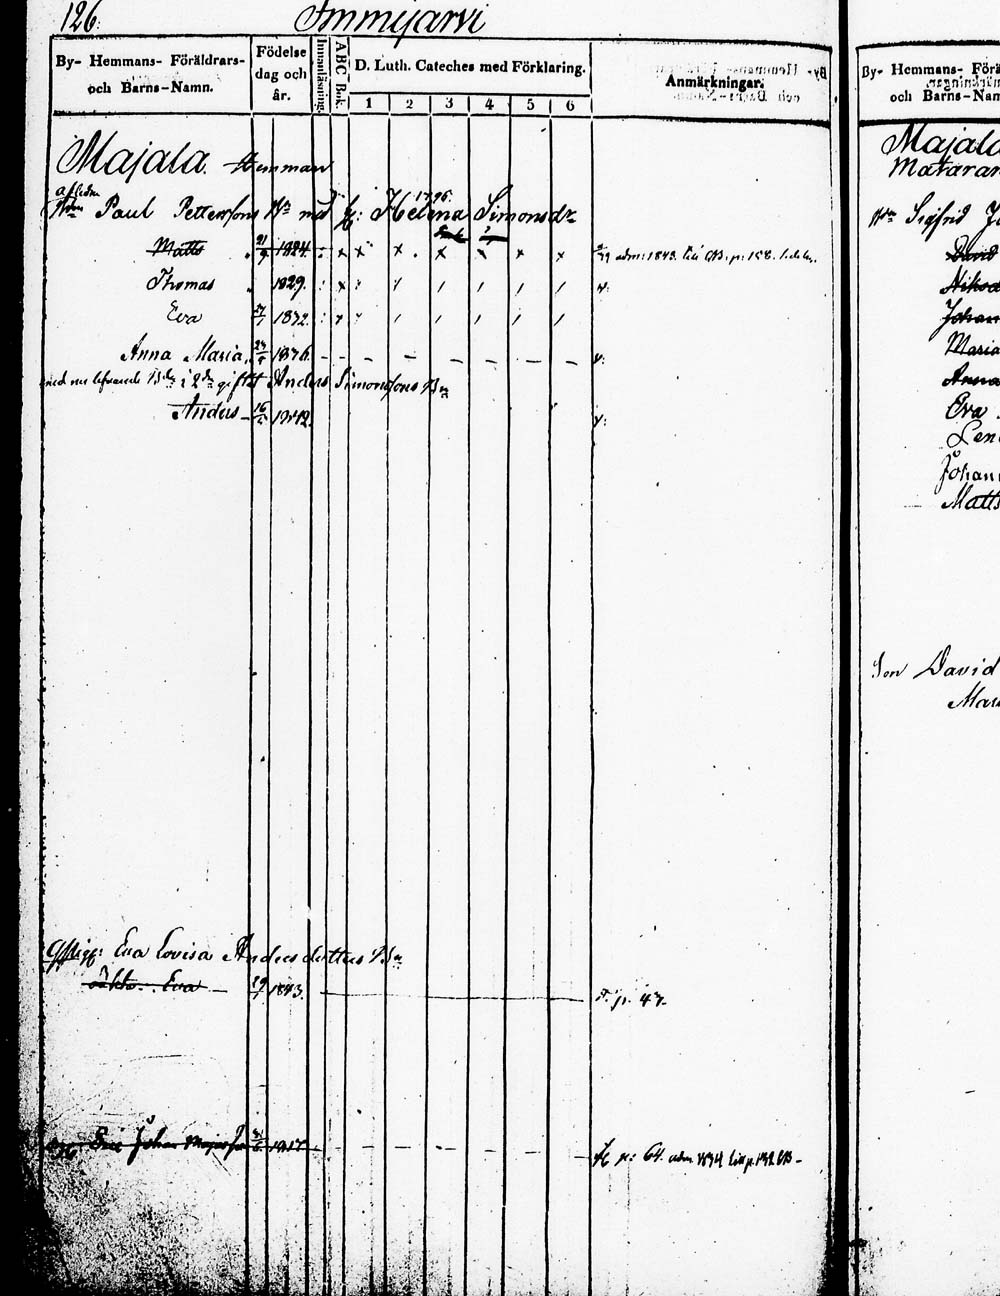 126.
Immijarvi
By- Hemmans- Föräldrars- och Barns-Namn.
Födelse dag och år.
Innanläsning
ABC-Bok.
D. Luth. Cateches med Förklaring.
1 2 3 4 5 6
Anmärkningar.
Majala. Hemman
afledne
Paul Pettersons Bn med h: Helena Simonsdr
1796
Matts 21/9 1824. adm: 1843. till p: 158.
Thomas 1829.
Eva 1832.
Anna Maria 1836.
med ofvanst i 2dra giftet Anders Simonsons Bn
Anders 16/ 1842.
Eva Lovisa Andersdotters Bn
oäkta. Eva 29/ 1843. F. p. 47.
Johan 1817. p: 64. adm 1834 till p.
By- Hemmans- Förä
och Barns-Nam
Majala
Mataran
Sigfrid J
David
Nikod
Johan
Maria
Anna
Eva
Len
Johan
Matts
Son David
Mar